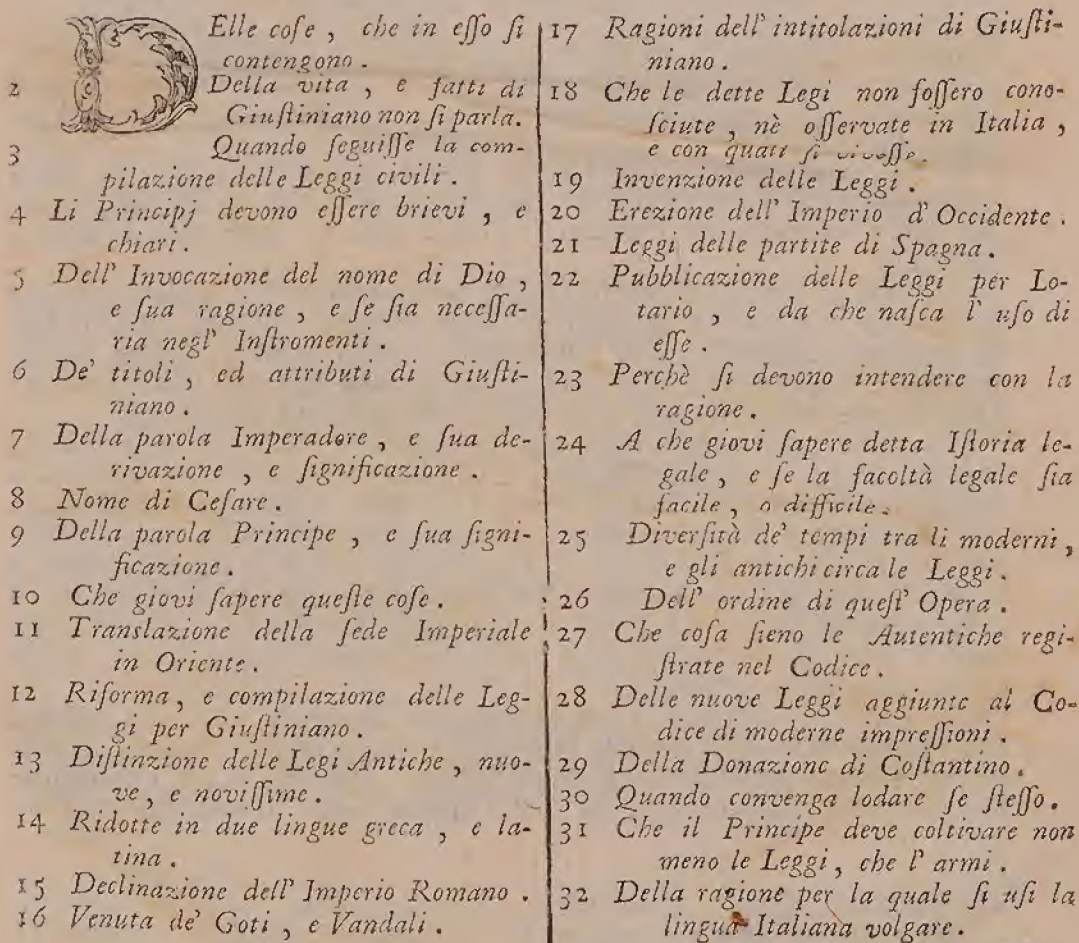 DElle cose, che in esso si
contengono.
2 Della vita, e fatti di
Giustiniano non si parla.
3 Quando seguisse la com-
pilazione delle Leggi civili.
4 Li Principj devono essere brievi, e
chiari.
5 Dell' Invocazione del nome di Dio,
e sua ragione, e se sia necessa-
ria negl' Instromenti.
6 De' titoli, ed attributi di Giusti-
niano.
7 Della parola Imperadore, e sua de-
rivazione, e significazione.
8 Nome di Cesare.
9 Della parola Principe, e sua signi-
ficazione.
10 Che giovi sapere queste cose.
11 Translazione della sede Imperiale
in Oriente.
12 Riforma, e compilazione delle Leg-
gi per Giustiniano.
13 Distinzione delle Legi Antiche, nuo-
ve, e novissime.
14 Ridotte in due lingue greca, e la-
tina.
15 Declinazione dell' Imperio Romano.
16 Venuta de' Goti, e Vandali.
17 Ragioni dell' intitolazioni di Giusti-
niano.
18 Che le dette Legi non fossero cono-
sciute, nè osservate in Italia,
e con quali si vivesse.
19 Invenzione delle Leggi.
20 Erezione dell' Imperio d' Occidente.
21 Leggi delle partite di Spagna.
22 Pubblicazione delle Leggi per Lo-
tario, e da che nasca l' uso di
esse.
23 Perchè si devono intendere con la
ragione.
24 A che giovi sapere detta Istoria le-
gale, e se la facoltà legale sia
facile, o difficile.
25 Diversità de' tempi tra li moderni,
e gli antichi circa le Leggi.
26 Dell' ordine di quest' Opera.
27 Che cosa sieno le Autentiche regi-
strate nel Codice.
28 Delle nuove Leggi aggiunte al Co-
dice di moderne impressioni.
29 Della Donazione di Costantino.
30 Quando convenga lodare se stesso.
31 Che il Principe deve coltivare non
meno le Leggi, che l' armi.
32 Della ragione per la quale si usi la
lingua Italiana volgare.